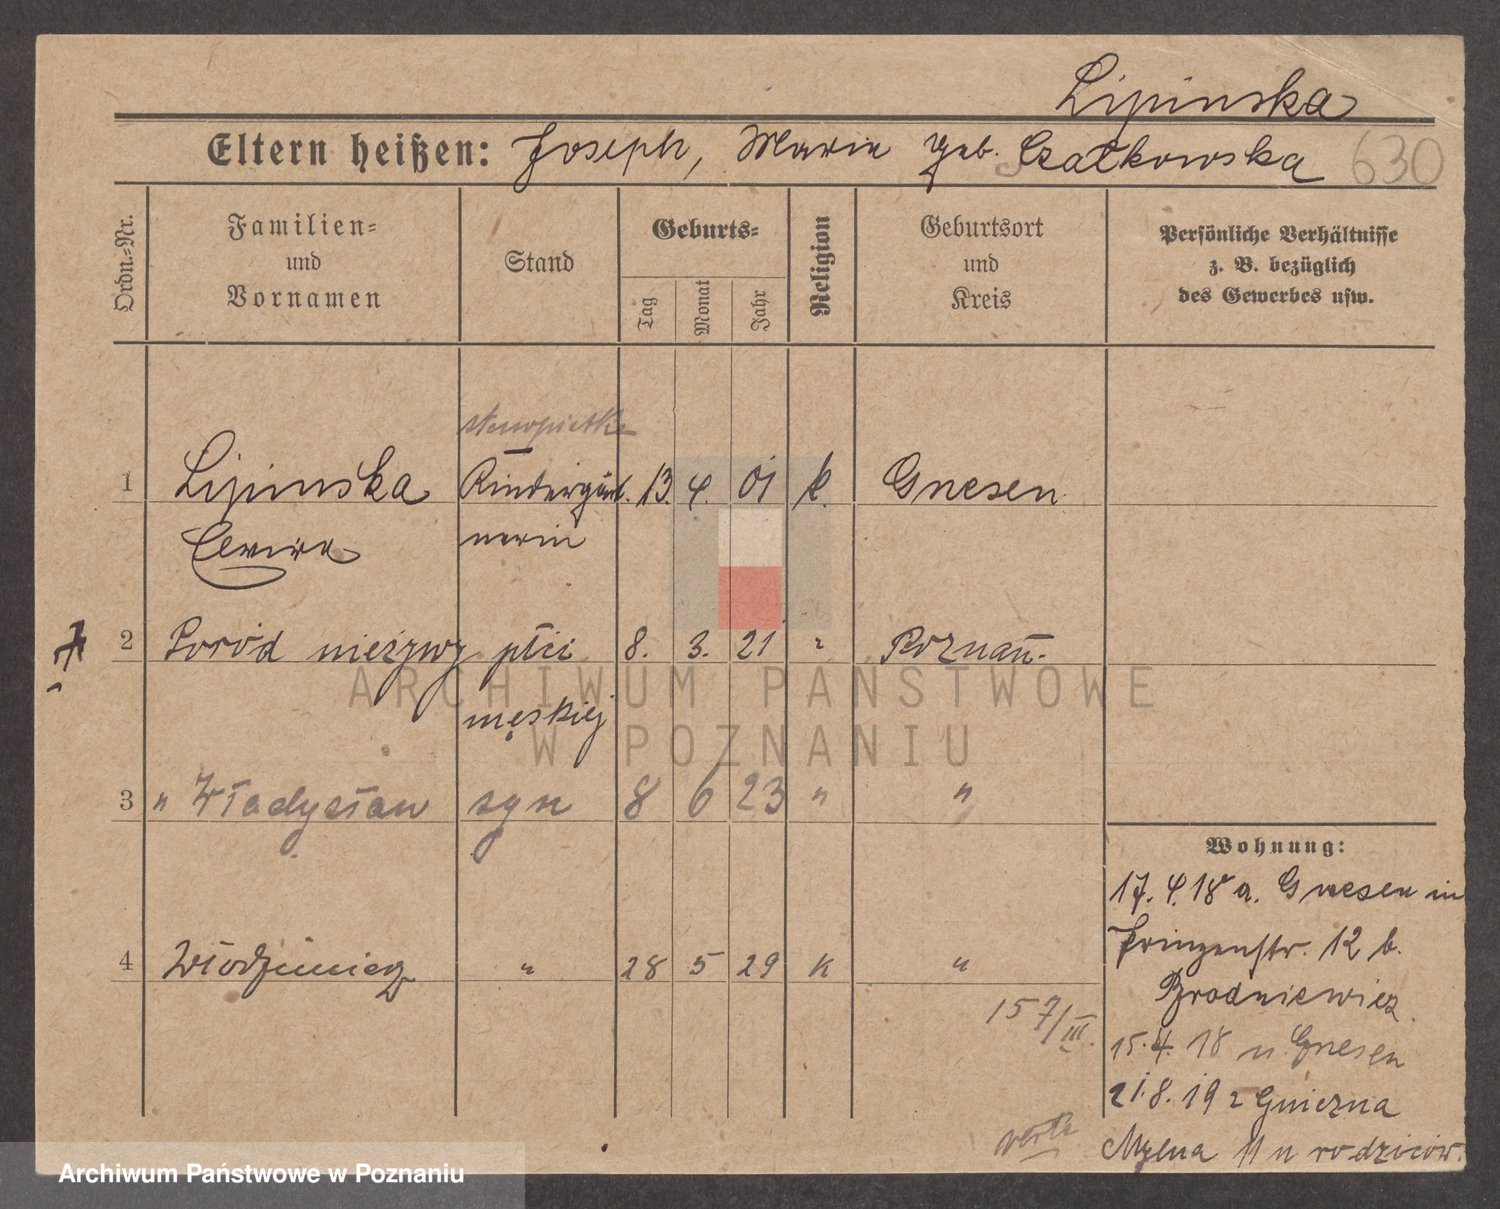 Lipinska
Eltern heißen: Joseph, Maria geb. Czatkowska 630
Ordn.=Nr.
Familien=
und
Vornamen
Stand
Geburts=
Tag
Monat
Jahr
Religion
Geburtsort
und
Kreis
Persönliche Verhältnisse
z. B. bezüglich
des Gewerbes usw.
1 Lipinska Kindergärt. 13. 4. 01 k. Gnesen
nerin
2 Poród nieżywy płci 8. 3. 21 " Poznań.
męskiej
3 " Władysław syn 8 6 23 " "
4 Włodzimierz " 28 5 29 K "
157/III.
Wohnung:
17. 4. 18 a. Gnesen in
Prinzenstr. 12 b.
Brodniewicz
15. 4. 18 n. Gnesen
21. 8. 19 z Gniezna
Mylna 11 u rodziców.
verte
ARCHIWUM PAŃSTWOWE
W POZNANIU
Archiwum Państwowe w Poznaniu